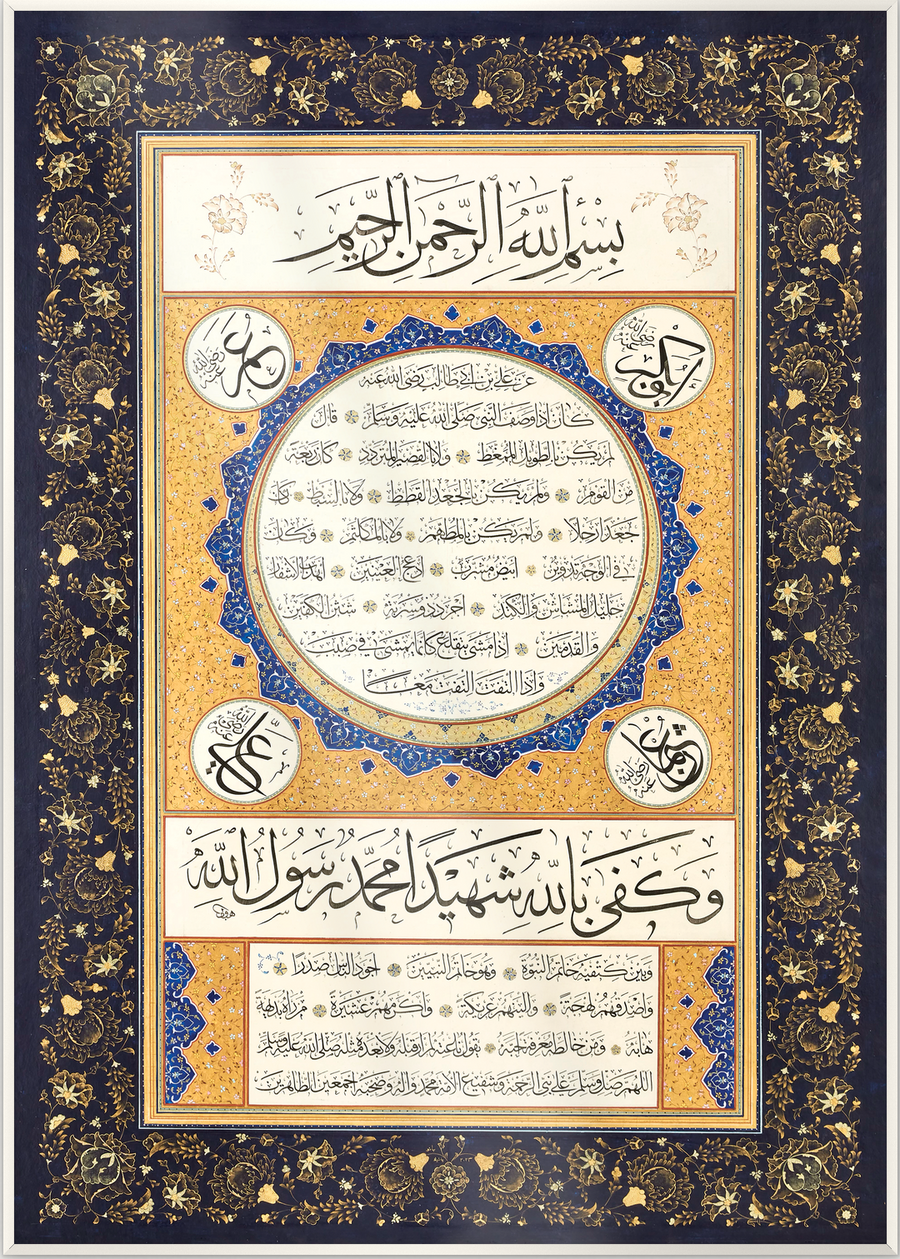 بِسْمِ اللَّهِ الرَّحْمٰنِ الرَّحِيمِ
ابو بكر رضي الله عنه
عمر رضي الله عنه
عن علي بن ابي طالب رضي الله عنه
كان اذا وصف النبي صلى الله عليه وسلم قال
لم يكن بالطويل الممغط ولا بالقصير المتردد كان ربعة
من القوم ولم يكن بالجعد القطط ولا بالسبط كان
جعدا رجلا ولم يكن بالمطهم ولا بالمكلثم وكان
في الوجه تدوير ابيض مشرب ادعج العينين اهدب الاشفار
جليل المشاش والكتد اجرد ذو مسربة شثن الكفين
والقدمين اذا مشى يتقلع كانما يمشي في صبب
واذا التفت التفت معا
عثمان رضي الله عنه
علي رضي الله عنه
وَكَفَى بِاللَّهِ شَهِيدًا مُحَمَّدٌ رَسُولُ اللَّهِ
وبين كتفيه خاتم النبوة وهو خاتم النبيين اجود الناس صدرا
واصدقهم لهجة والينهم عريكة واكرمهم عشيرة من رآه بديهة
هابه ومن خالطه معرفة احبه يقول ناعته لم ار قبله ولا بعده مثله صلى الله عليه وسلم
اللهم صل وسلم على نبي الرحمة وشفيع الامة محمد وآله وصحبه اجمعين الطاهرين